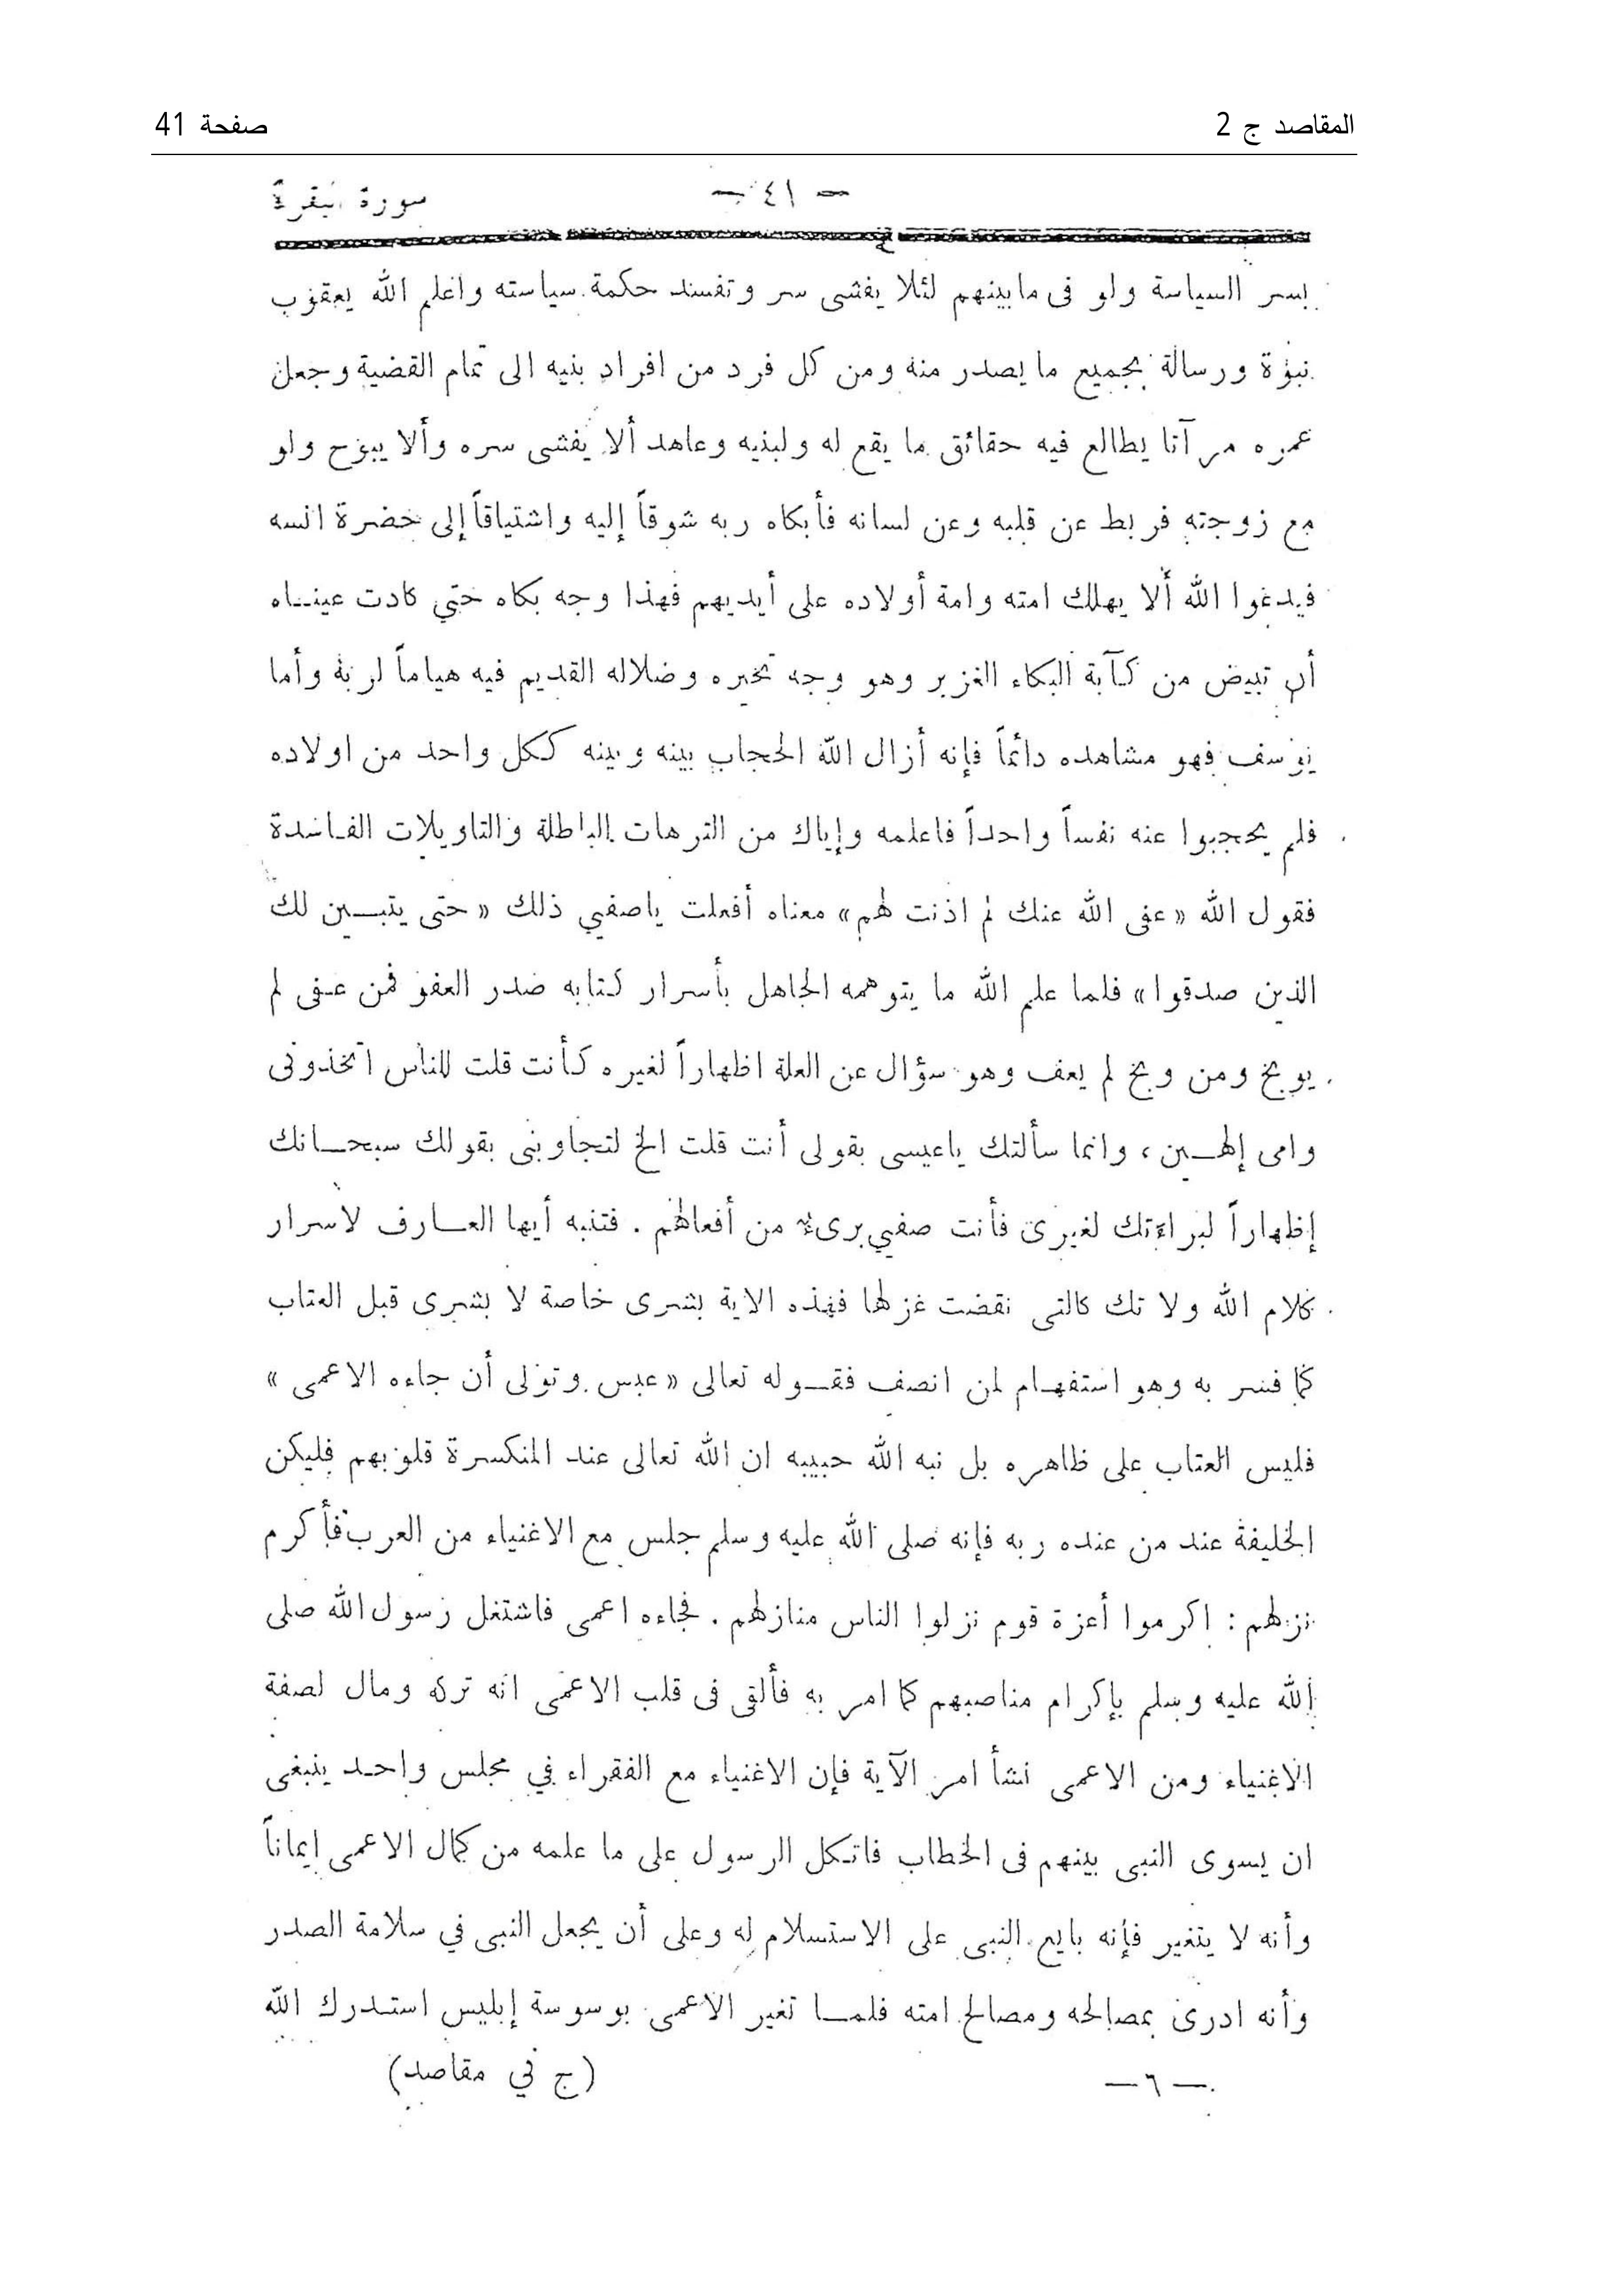 المقاصد ج 2
صفحة 41
— ٤١ —
سورة البقرة
بسر السياسة ولو فى ما بينهم لئلا يفشى سر وتفسد حكمة سياسته واعلم الله يعقوب
نبوة ورسالة بجميع ما يصدر منه ومن كل فرد من افراد بنيه الى تمام القضية وجعل
عمره مرآتا يطالع فيه حقائق ما يقع له ولبنيه وعاهد ألا يفشى سره وألا يبوح ولو
مع زوجته فربط عن قلبه وعن لسانه فأبكاه ربه شوقاً إليه واشتياقاً إلى حضرة انسه
فيدعوا الله ألا يهلك امته وامة أولاده على أيديهم فهذا وجه بكاه حتي كادت عينــاه
أن تبيض من كآبة البكاء الغزير وهو وجه تحيره وضلاله القديم فيه هياماً لربه وأما
يوسف فهو مشاهده دائماً فإنه أزال الله الحجاب بينه وبينه ككل واحد من اولاده
فلم يحجبوا عنه نفساً واحداً فاعلمه وإياك من الترهات الباطلة والتاويلات الفـاسدة
فقول الله « عفى الله عنك لم اذنت لهم » معناه أفعلت ياصفي ذلك « حتى يتبــين لك
الذين صدقوا » فلما علم الله ما يتوهمه الجاهل بأسرار كتابه صدر العفو فمن عـفى لم
يوبخ ومن وبخ لم يعف وهو سؤال عن العلة اظهاراً لغيره كأنت قلت للناس اتخذونى
وامى إلهــين ، وانما سألتك ياعيسى بقولى أنت قلت الخ لتجاوبنى بقولك سبحــانك
إظهاراً لبراءتك لغيرى فأنت صفي برىء من أفعالهم . فتنبه أيها العــارف لاسرار
كلام الله ولا تك كالتى نقضت غزلها فهذه الاية بشرى خاصة لا بشرى قبل العتاب
كما فسر به وهو استفهـام لمن انصف فقــوله تعالى « عبس وتولى أن جاءه الاعمى »
فليس العتاب على ظاهره بل نبه الله حبيبه ان الله تعالى عند المنكسرة قلوبهم فليكن
الخليفة عند من عنده ربه فإنه صلى الله عليه وسلم جلس مع الاغنياء من العرب فأكرم
نزلهم : اكرموا أعزة قوم نزلوا الناس منازلهم . فجاءه اعمى فاشتغل رسول الله صلى
الله عليه وسلم بإكرام مناصبهم كما امر به فألقى فى قلب الاعمى انه تركه ومال لصفة
الاغنياء ومن الاعمى نشأ امر الآية فإن الاغنياء مع الفقراء في مجلس واحـد ينبغى
ان يسوى النبى بينهم فى الخطاب فاتـكل الرسول على ما علمه من كمال الاعمى إيماناً
وأنه لا يتغير فإنه بايع النبى على الاستسلام له وعلى أن يجعل النبى في سلامة الصدر
وأنه ادرى بمصالحه ومصالح امته فلمــا تغير الاعمى بوسوسة إبليس استـدرك الله
— ٦ —
(ج ني مقاصد)